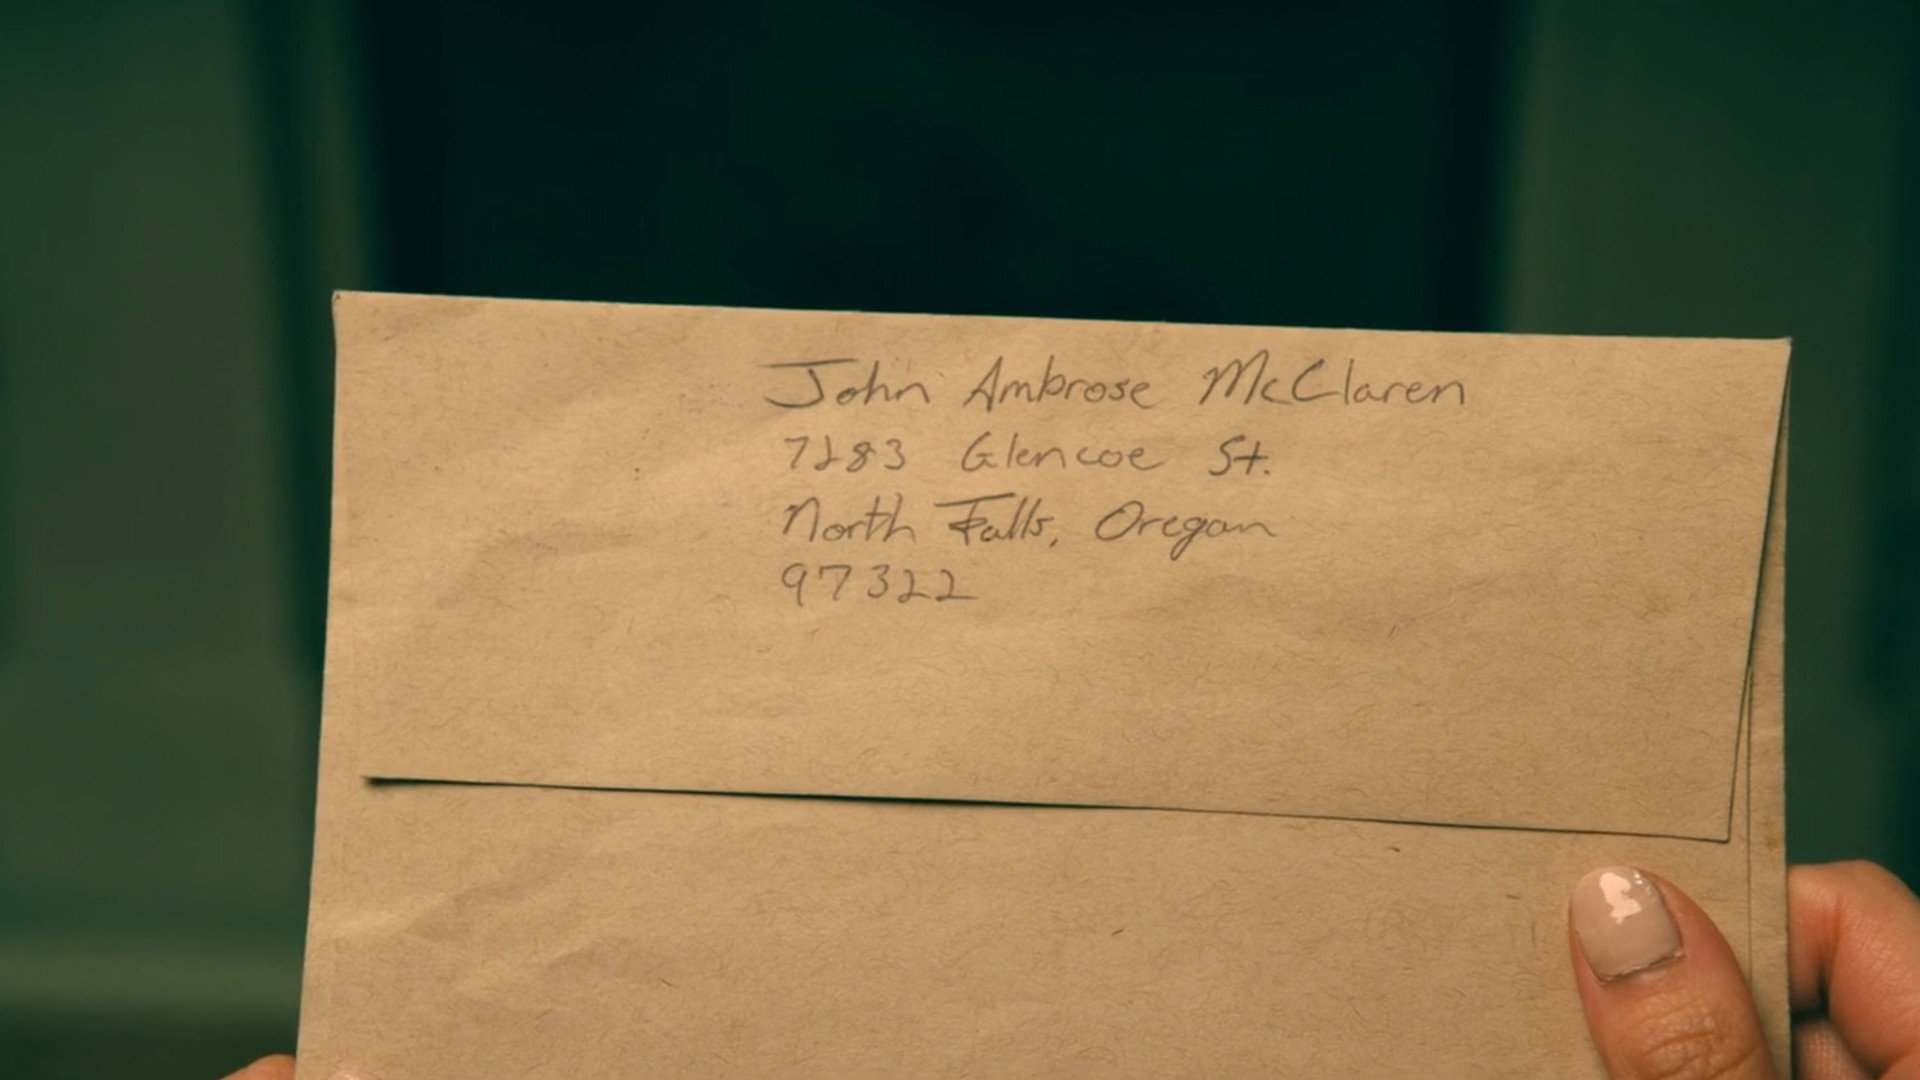 John Ambrose McClaren
7283 Glencoe St.
North Falls, Oregon
97322